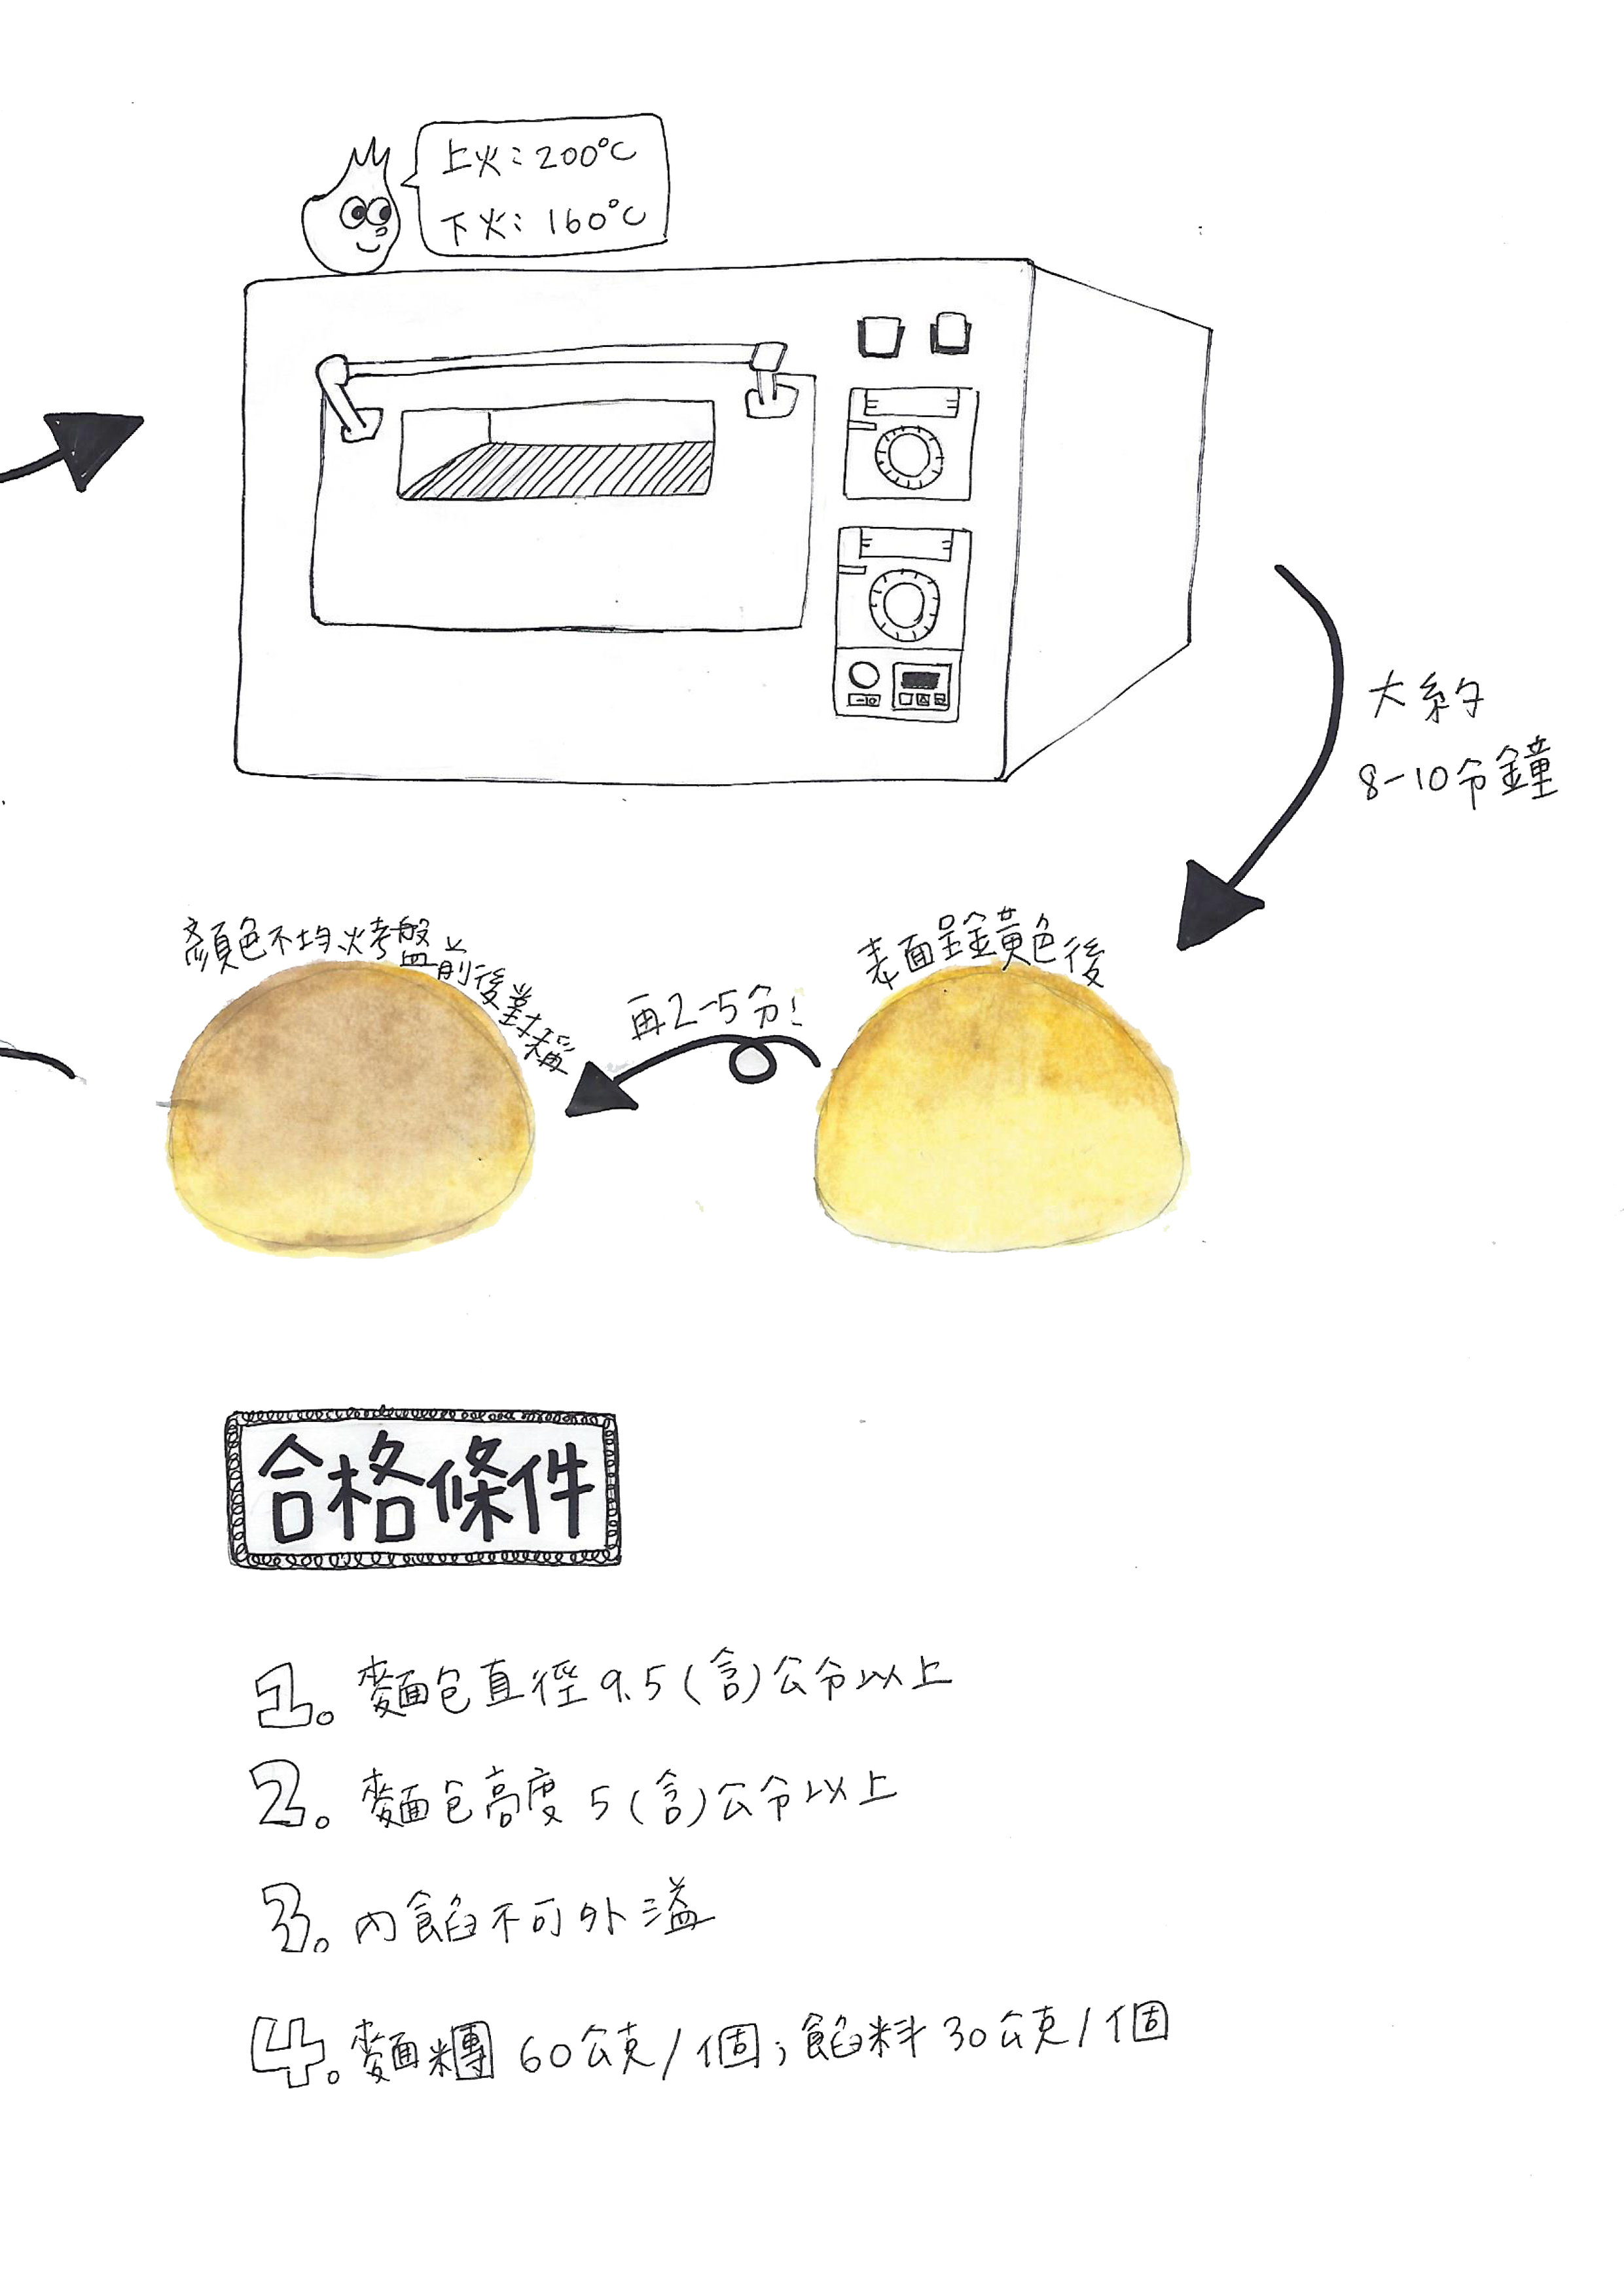 上火:200°C
下火:160°C
大約
8-10分鐘
表面呈金黃色後
再2-5分!
顏色不均烤盤前後對稱
合格條件
1. 麵包直徑9.5(含)公分以上
2. 麵包高度5(含)公分以上
3. 內餡不可外溢
4. 麵糰60公克/個;餡料30公克/個